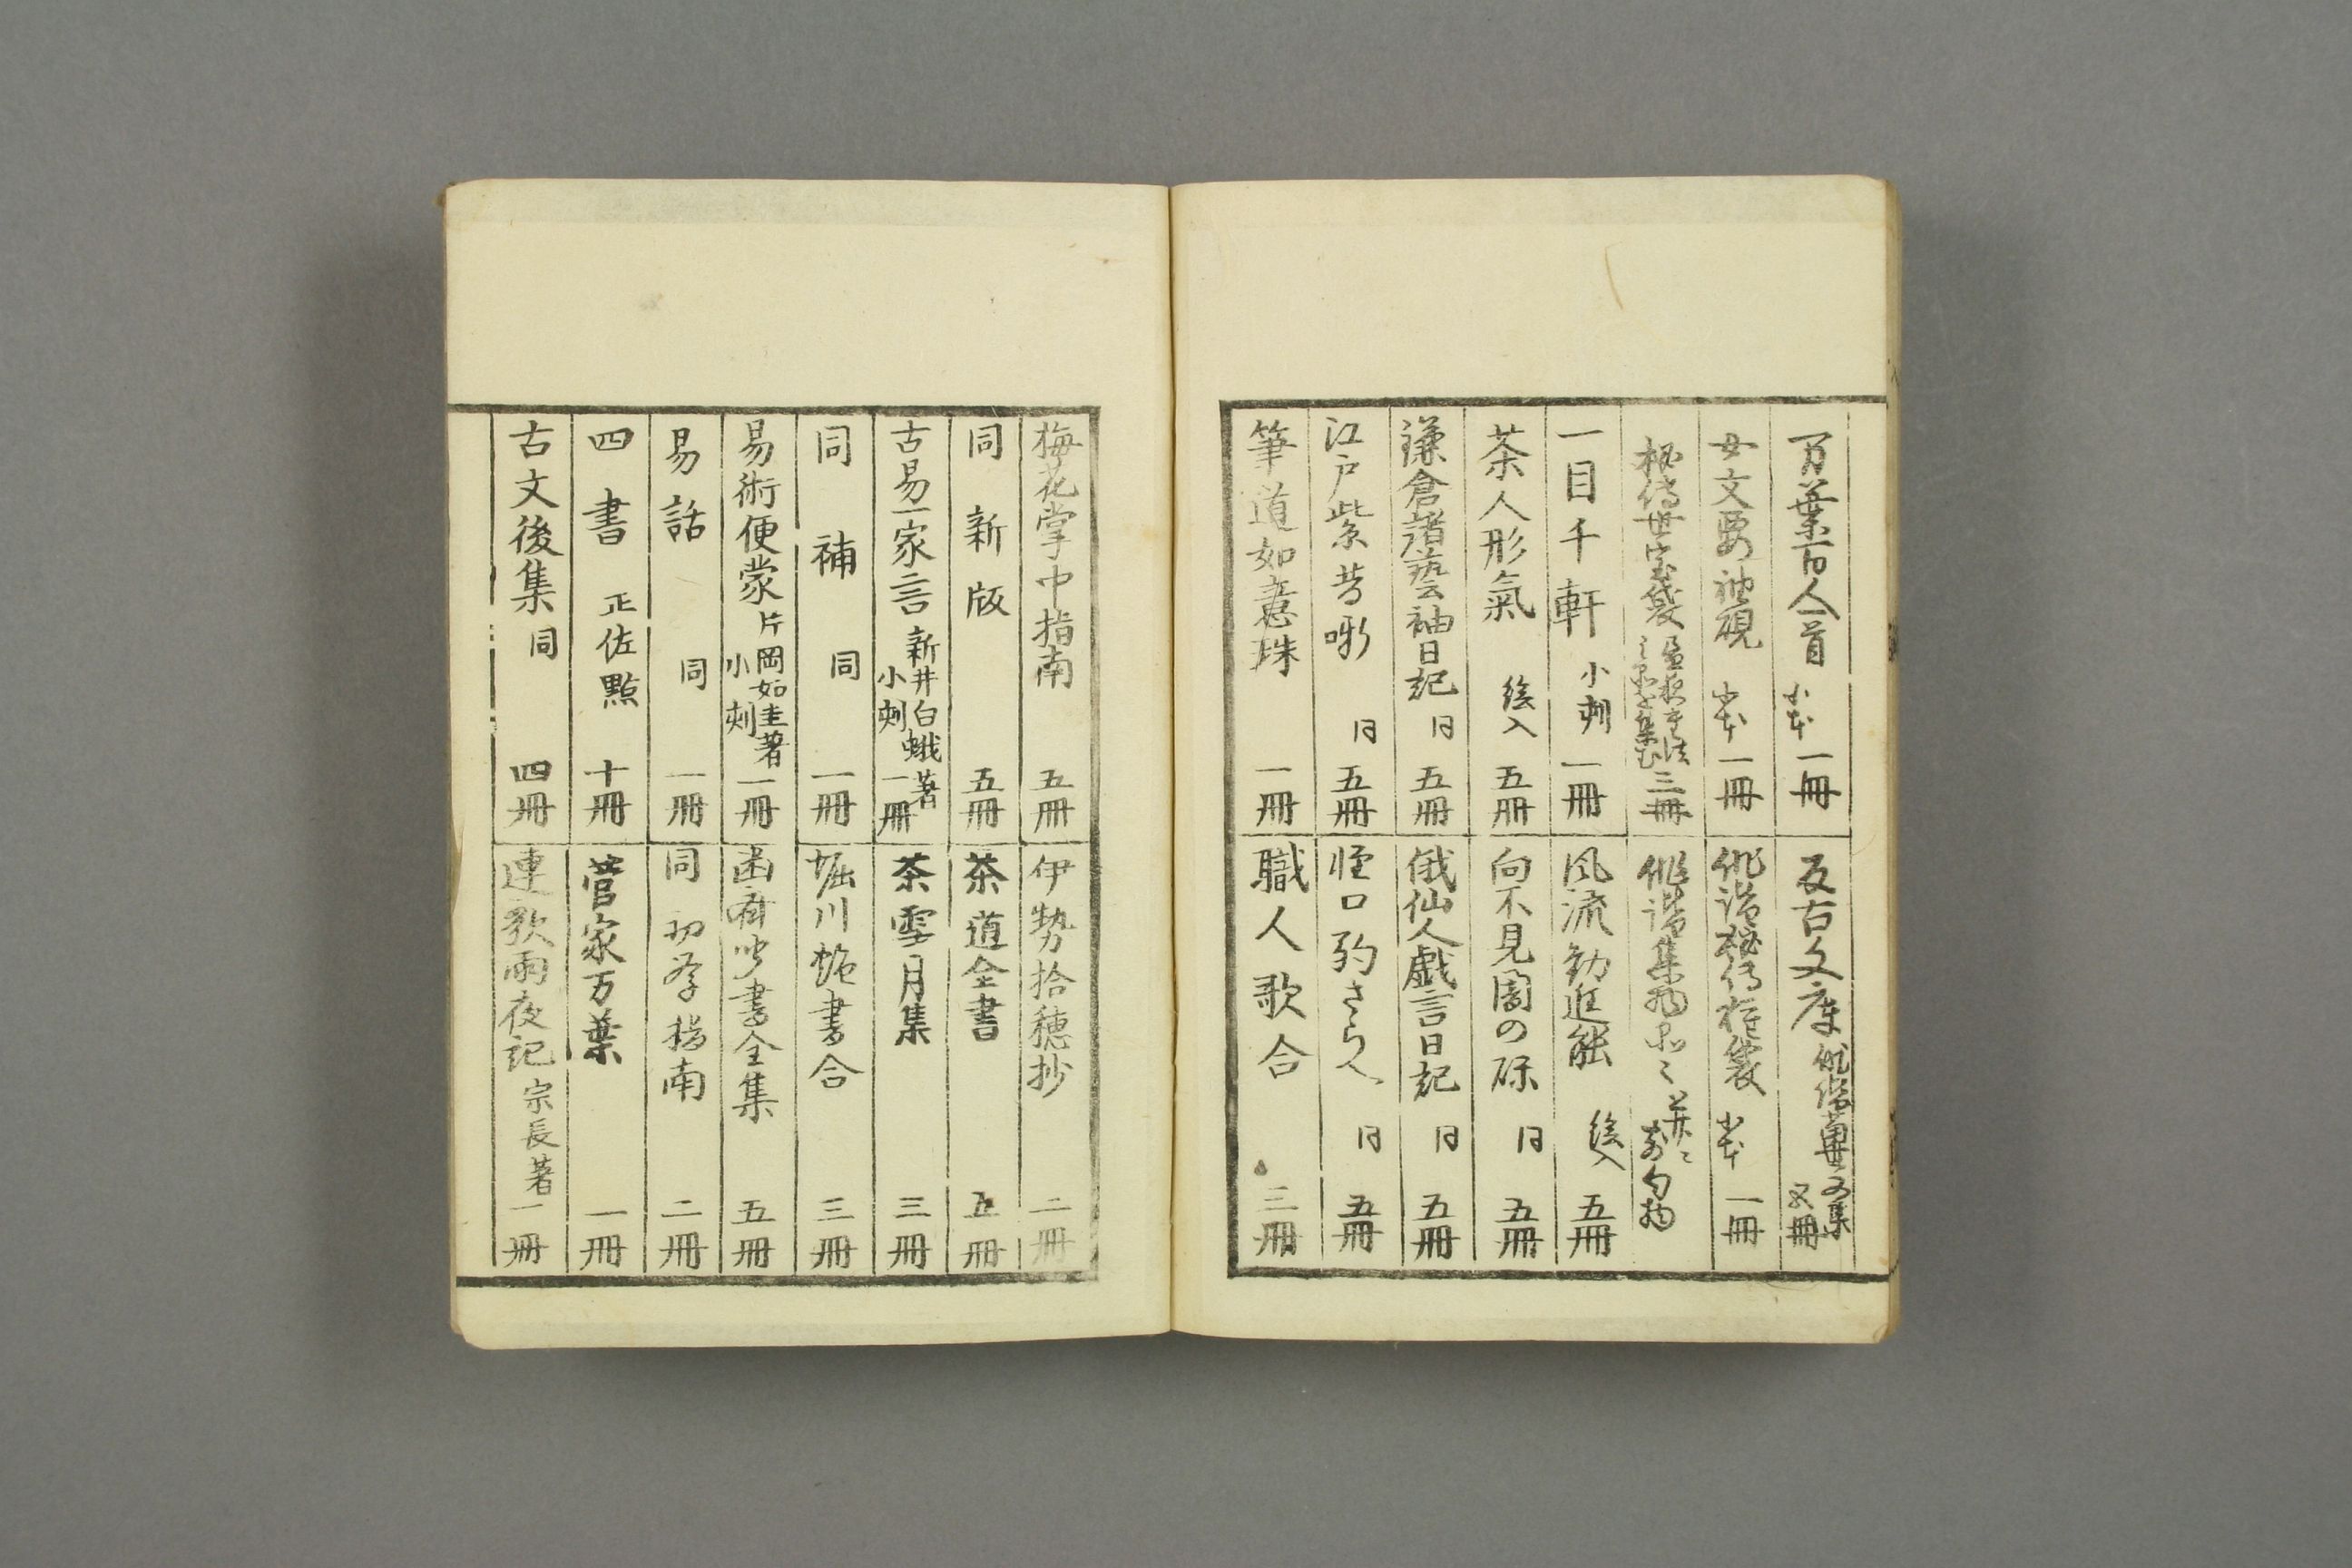 万葉百人一首 小本 一冊
女文要袖硯 小本 一冊
秘伝世宝袋 三冊
一目千軒 小刻 一冊
茶人形氣 絵入 五冊
鎌倉諸藝袖日記 同 五冊
江戸紫昔噺 同 五冊
筆道如意珠 一冊
反古文庫 俳諧 文集 五冊
俳諧秘伝 袋 小本 一冊
俳諧集
風流勧進能 絵入 五冊
向不見闇の礫 同 五冊
俄仙人戯言日記 同 五冊
怪口 同 五冊
職人歌合 三冊
梅花掌中指南 五冊
同新版 五冊
古易一家言 新井白蛾著 小刻 一冊
同補 同 一冊
易術便蒙 片岡如圭著 小刻 一冊
易話 同 一冊
四書 正佐點 十冊
古文後集 同 四冊
伊勢拾穂抄 二冊
茶道全書 五冊
茶雪月集 三冊
堀川 書合 三冊
書全集 五冊
同初学指南 二冊
菅家万葉 一冊
連歌雨夜記 宗長著 一冊